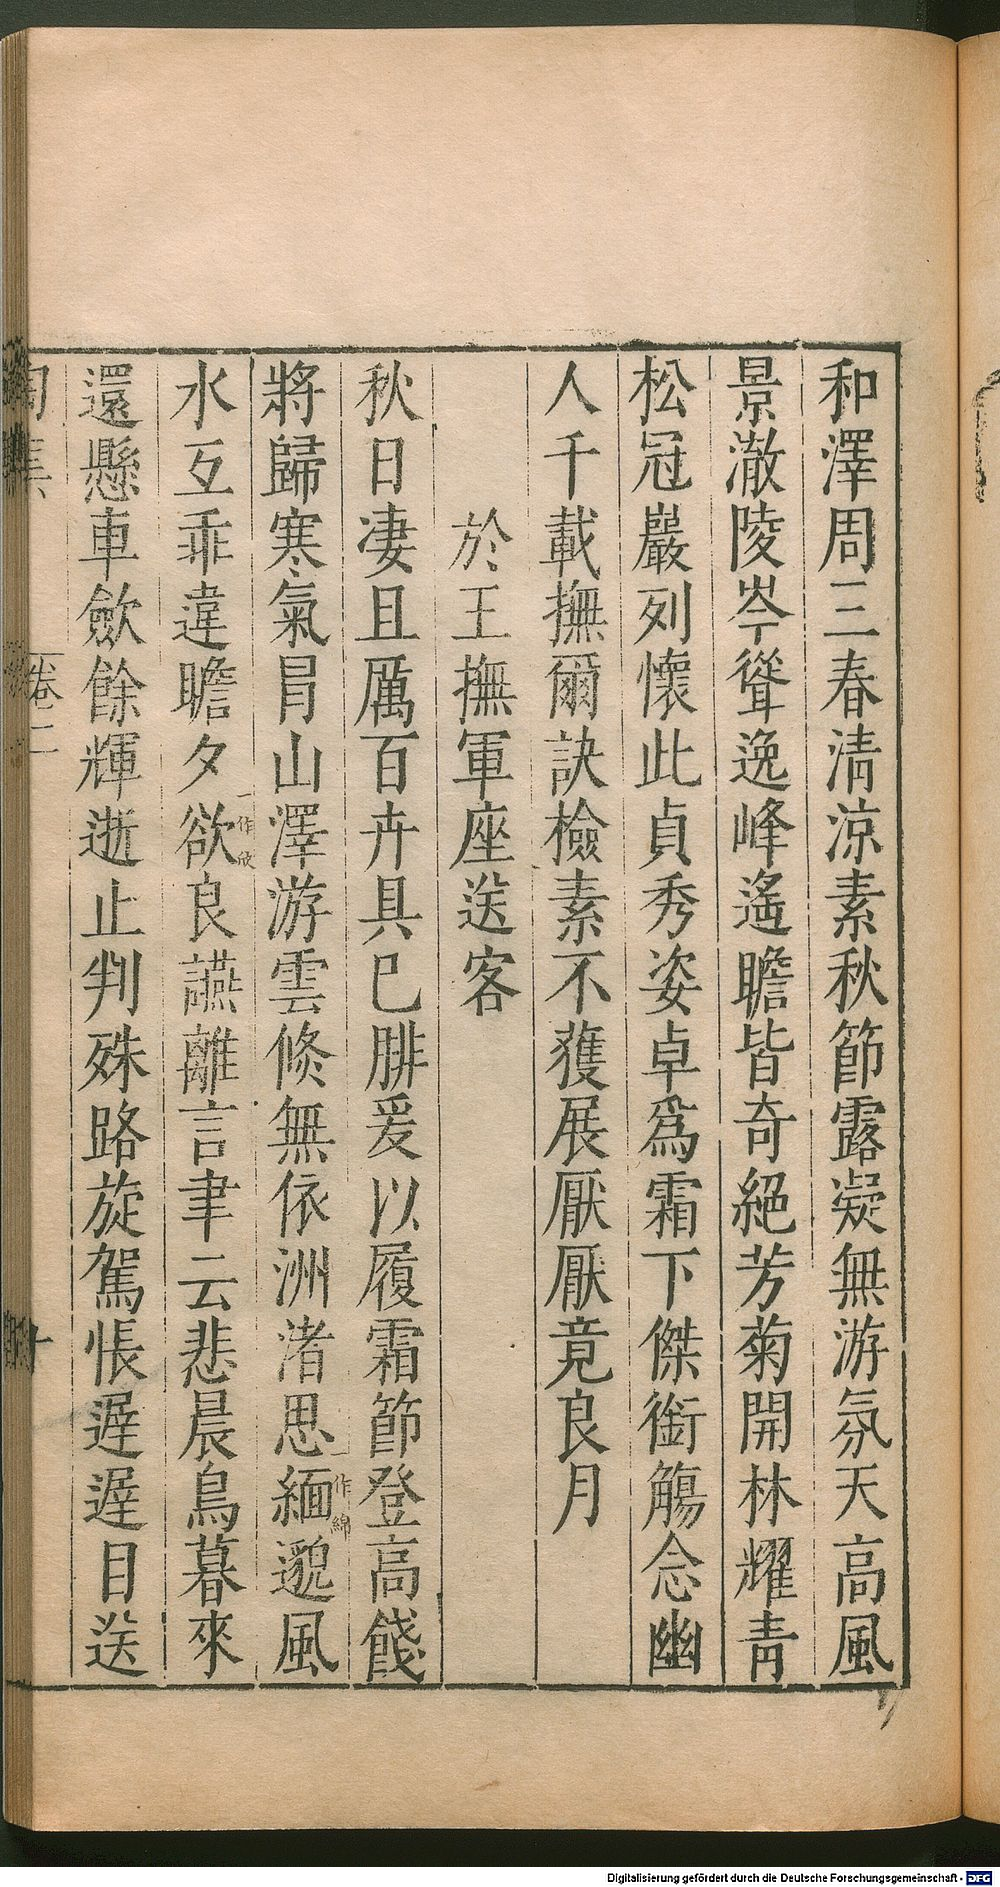 和澤周三春清涼素秋節露凝無游氛天高風
景澈陵岑聳逸峰遙瞻皆奇絕芳菊開林耀青
松冠巖列懷此貞秀姿卓為霜下傑銜觴念幽
人千載撫爾訣檢素不獲展厭厭竟良月
於王撫軍座送客
秋日凄且厲百卉具已腓爰以履霜節登高餞
將歸寒氣冐山澤游雲倏無依洲渚思緬邈風
一作綿
水互乖違瞻夕欲良讌離言聿云悲晨鳥暮來
一作欣
還懸車歛餘輝逝止判殊路旋駕悵遲遲目送
陶集
卷二
十
Digitalisierung gefördert durch die Deutsche Forschungsgemeinschaft - DFG